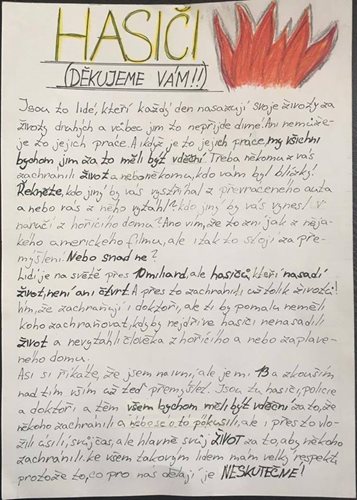 HASIČI
(DĚKUJEME VÁM!!)
Jsou to lidé, kteří každý den nasazují svoje životy za
životy druhých a vůbec jim to nepřijde divné! Ani nemůže-
je to jejich práce. A i když je to jejich práce, my všichni
bychom jim za to měli být vděční. Třeba někomu z vás
zachránili život a nebo někomu, kdo vám byl blízký.
Řekněte, kdo jiný by vás vystříhal z převráceného auta
a nebo vás z něho vytáhl? kdo jiný by vás vynesl v
náručí z hořícího domu? Ano vím, že to zní jak z něja-
kého amerického filmu, ale i tak to stojí za pře-
mýšlení. Nebo snad ne?
Lidí je na světě přes 10 miliard, ale hasičů, kteří nasadí
život, není ani čtvrt. A přes to zachránili už tolik životů!
Vím, že zachraňují i doktoři, ale ti by pomalu neměli
koho zachraňovat, kdyby nejdříve hasiči nenasadili
život a nevytáhli člověka z hořícího a nebo zaplave-
ného domu.
Asi si říkáte, že jsem naivní, ale je mi 13 a zkouším
nad tím vším už teď přemýšlet. Jsou tu hasiči, policie
a doktoři a těm všem bychom měli být vděční za to, že
někoho zachránili a nebo se o to pokusili, ale i přes to vlo-
žili úsilí, svůj čas, ale hlavně svůj ŽIVOT za to, aby někoho
zachránili. ke všem takovým lidem mám velký respekt,
protože to, co pro nás dělají je NESKUTEČNÉ!